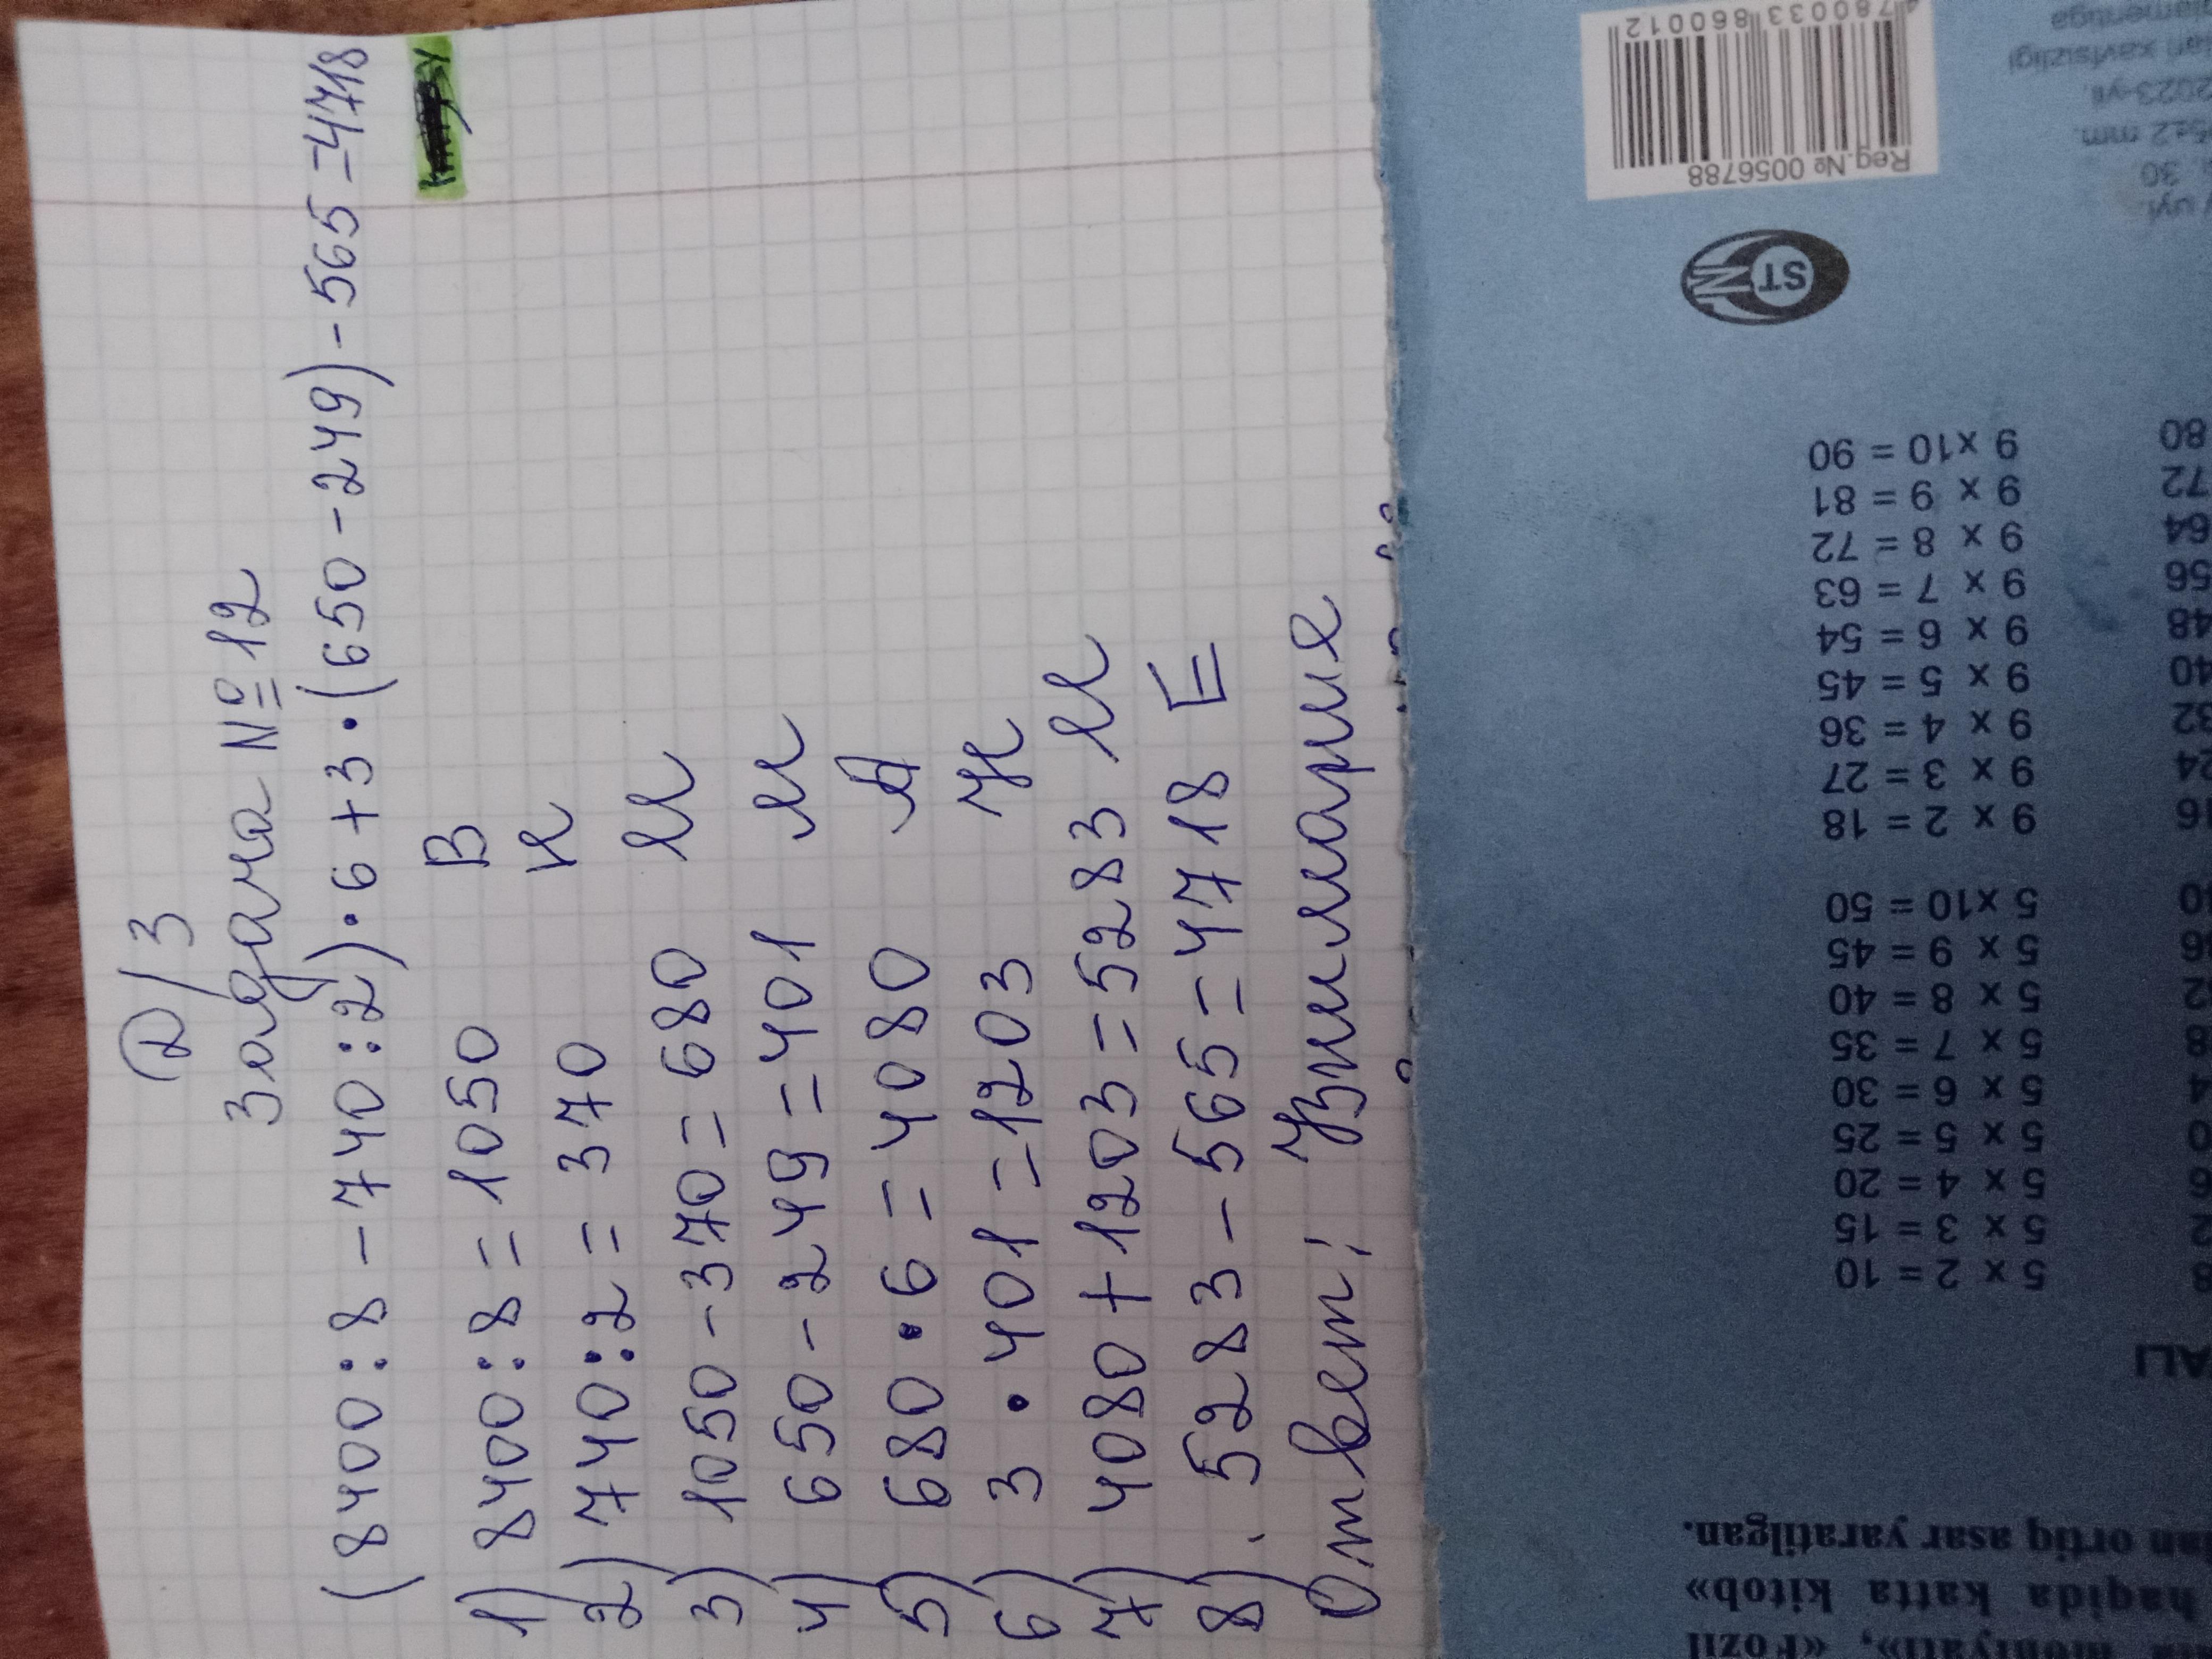 Д/З
Задача № 12
(8400:8-740:2)·6+3·(650-249)-565=4718
1) 8400:8=1050 В
2) 740:2=370 К
3) 1050-370=680 И
4) 650-249=401 М
5) 680·6=4080 А
6) 3·401=1203 Н
7) 4080+1203=5283 И
8). 5283-565=4718 Е
Ответ:
4780033860012
Reg.№ 0056788
ST
2023-yil.
5±2 mm.
30
uyi.
xavfsizligi
9 x10 = 90
9 x 9 = 81
9 x 8 = 72
9 x 7 = 63
9 x 6 = 54
9 x 5 = 45
9 x 4 = 36
9 x 3 = 27
9 x 2 = 18
5 x10 = 50
5 x 9 = 45
5 x 8 = 40
5 x 7 = 35
5 x 6 = 30
5 x 5 = 25
5 x 4 = 20
5 x 3 = 15
5 x 2 = 10
80
72
64
56
48
40
32
24
16
ALI
haqida katta kitob»
an ortiq asar yaratilgan.